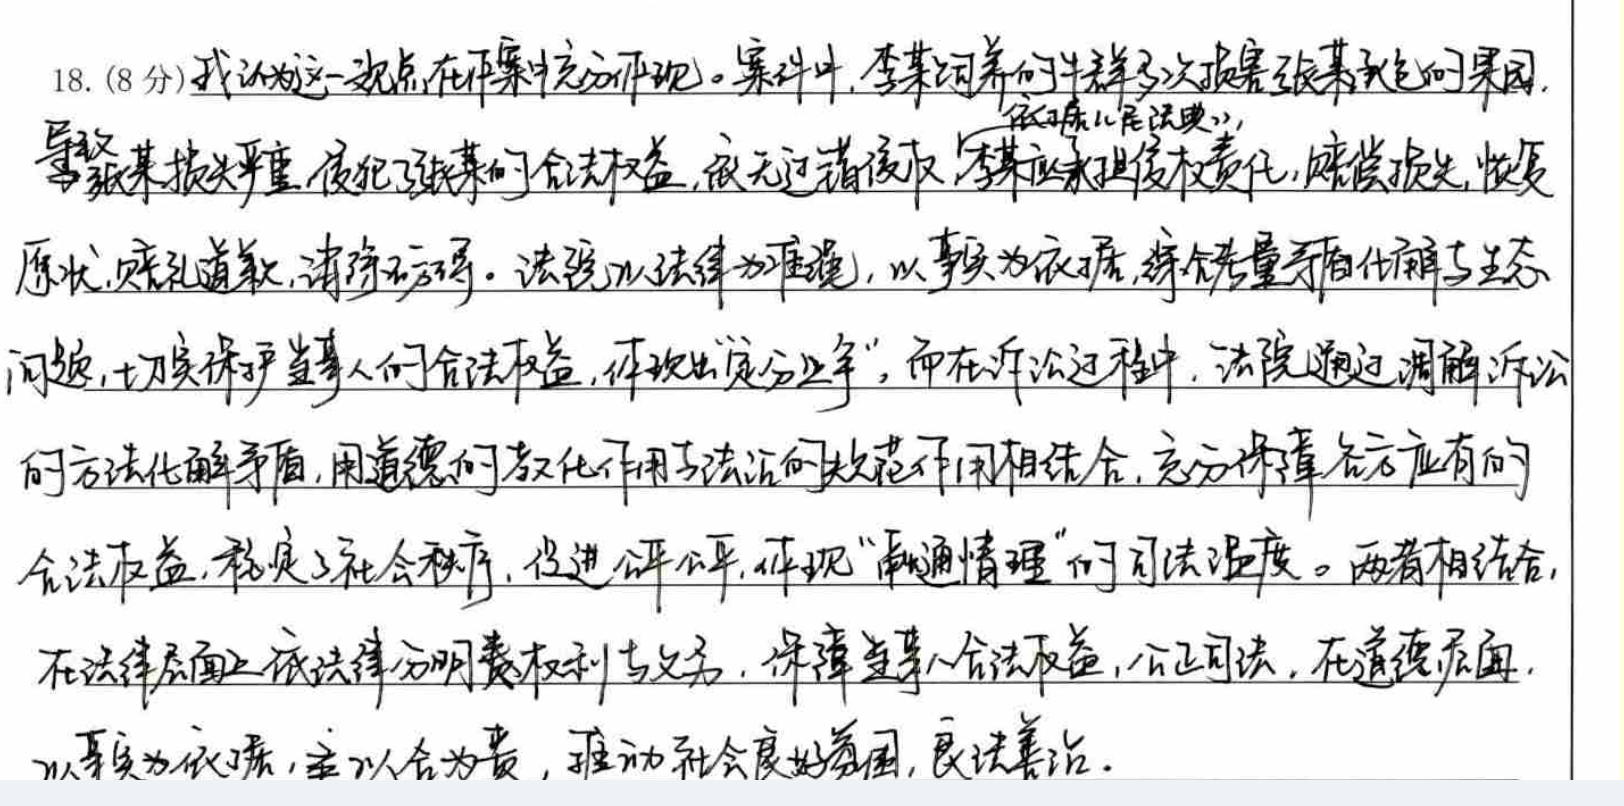 18. (8 分) 我认为这一观点在本案中充分体现。案件中,李某饲养的牛群多次损害张某承包的果园,
依据《民法典》,
导致张某损失严重,侵犯了张某的合法权益,依无过错侵权,李某应承担侵权责任,赔偿损失,恢复
原状,赔礼道歉,消除妨碍。法院以法律为准绳,以事实为依据,综合考量矛盾化解与生态
问题,切实保护当事人的合法权益,体现出"定分止争",而在诉讼过程中,法院通过调解诉讼
的方法化解矛盾,用道德的教化作用与法治的规范作用相结合,充分保障各方应有的
合法权益,稳定了社会秩序,促进公平公平,体现"融通情理"的司法温度。两者相结合,
在法律层面上依法律分明责权利与义务,保障当事人合法权益,公正司法,在道德层面,
以事实为依据,以合为贵,推动社会良好氛围,良法善治。